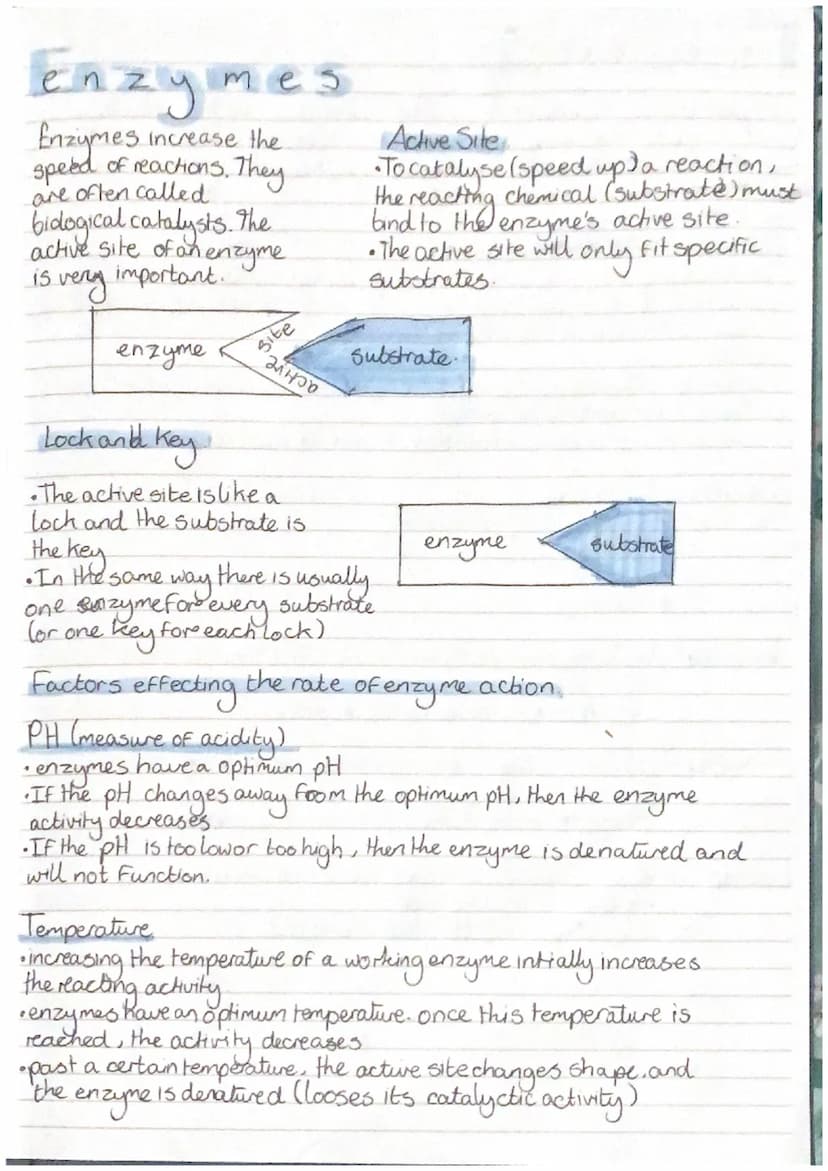 enzymes
Enzymes increase the
speed of reactions. They
are often called
biological catalysts. The
active site of an enzyme
is very important.
Active Site
•To catalyse (speed up) a reaction,
the reacting chemical (substrate) must
bind to the enzyme's active site.
•The active site will only fit specific
substrates.
enzyme
active site
substrate.
Lock and Key
•The active site is like a
lock and the substrate is
the key
•In the same way there is usually
one enzyme for every substrate
(or one key for each lock)
enzyme
substrate
Factors effecting the rate of enzyme action.
PH (measure of acidity)
•enzymes have a optimum pH
•If the pH changes away from the optimum pH, then the enzyme
activity decreases
•If the pH is too low or too high, then the enzyme is denatured and
will not function.
Temperature
•increasing the temperature of a working enzyme intially increases
the reacting activity
•enzymes have an optimum temperature. once this temperature is
reached, the activity decreases
•past a certain temperature, the active site changes shape, and
the enzyme is denatured (looses its catalyctic activity)